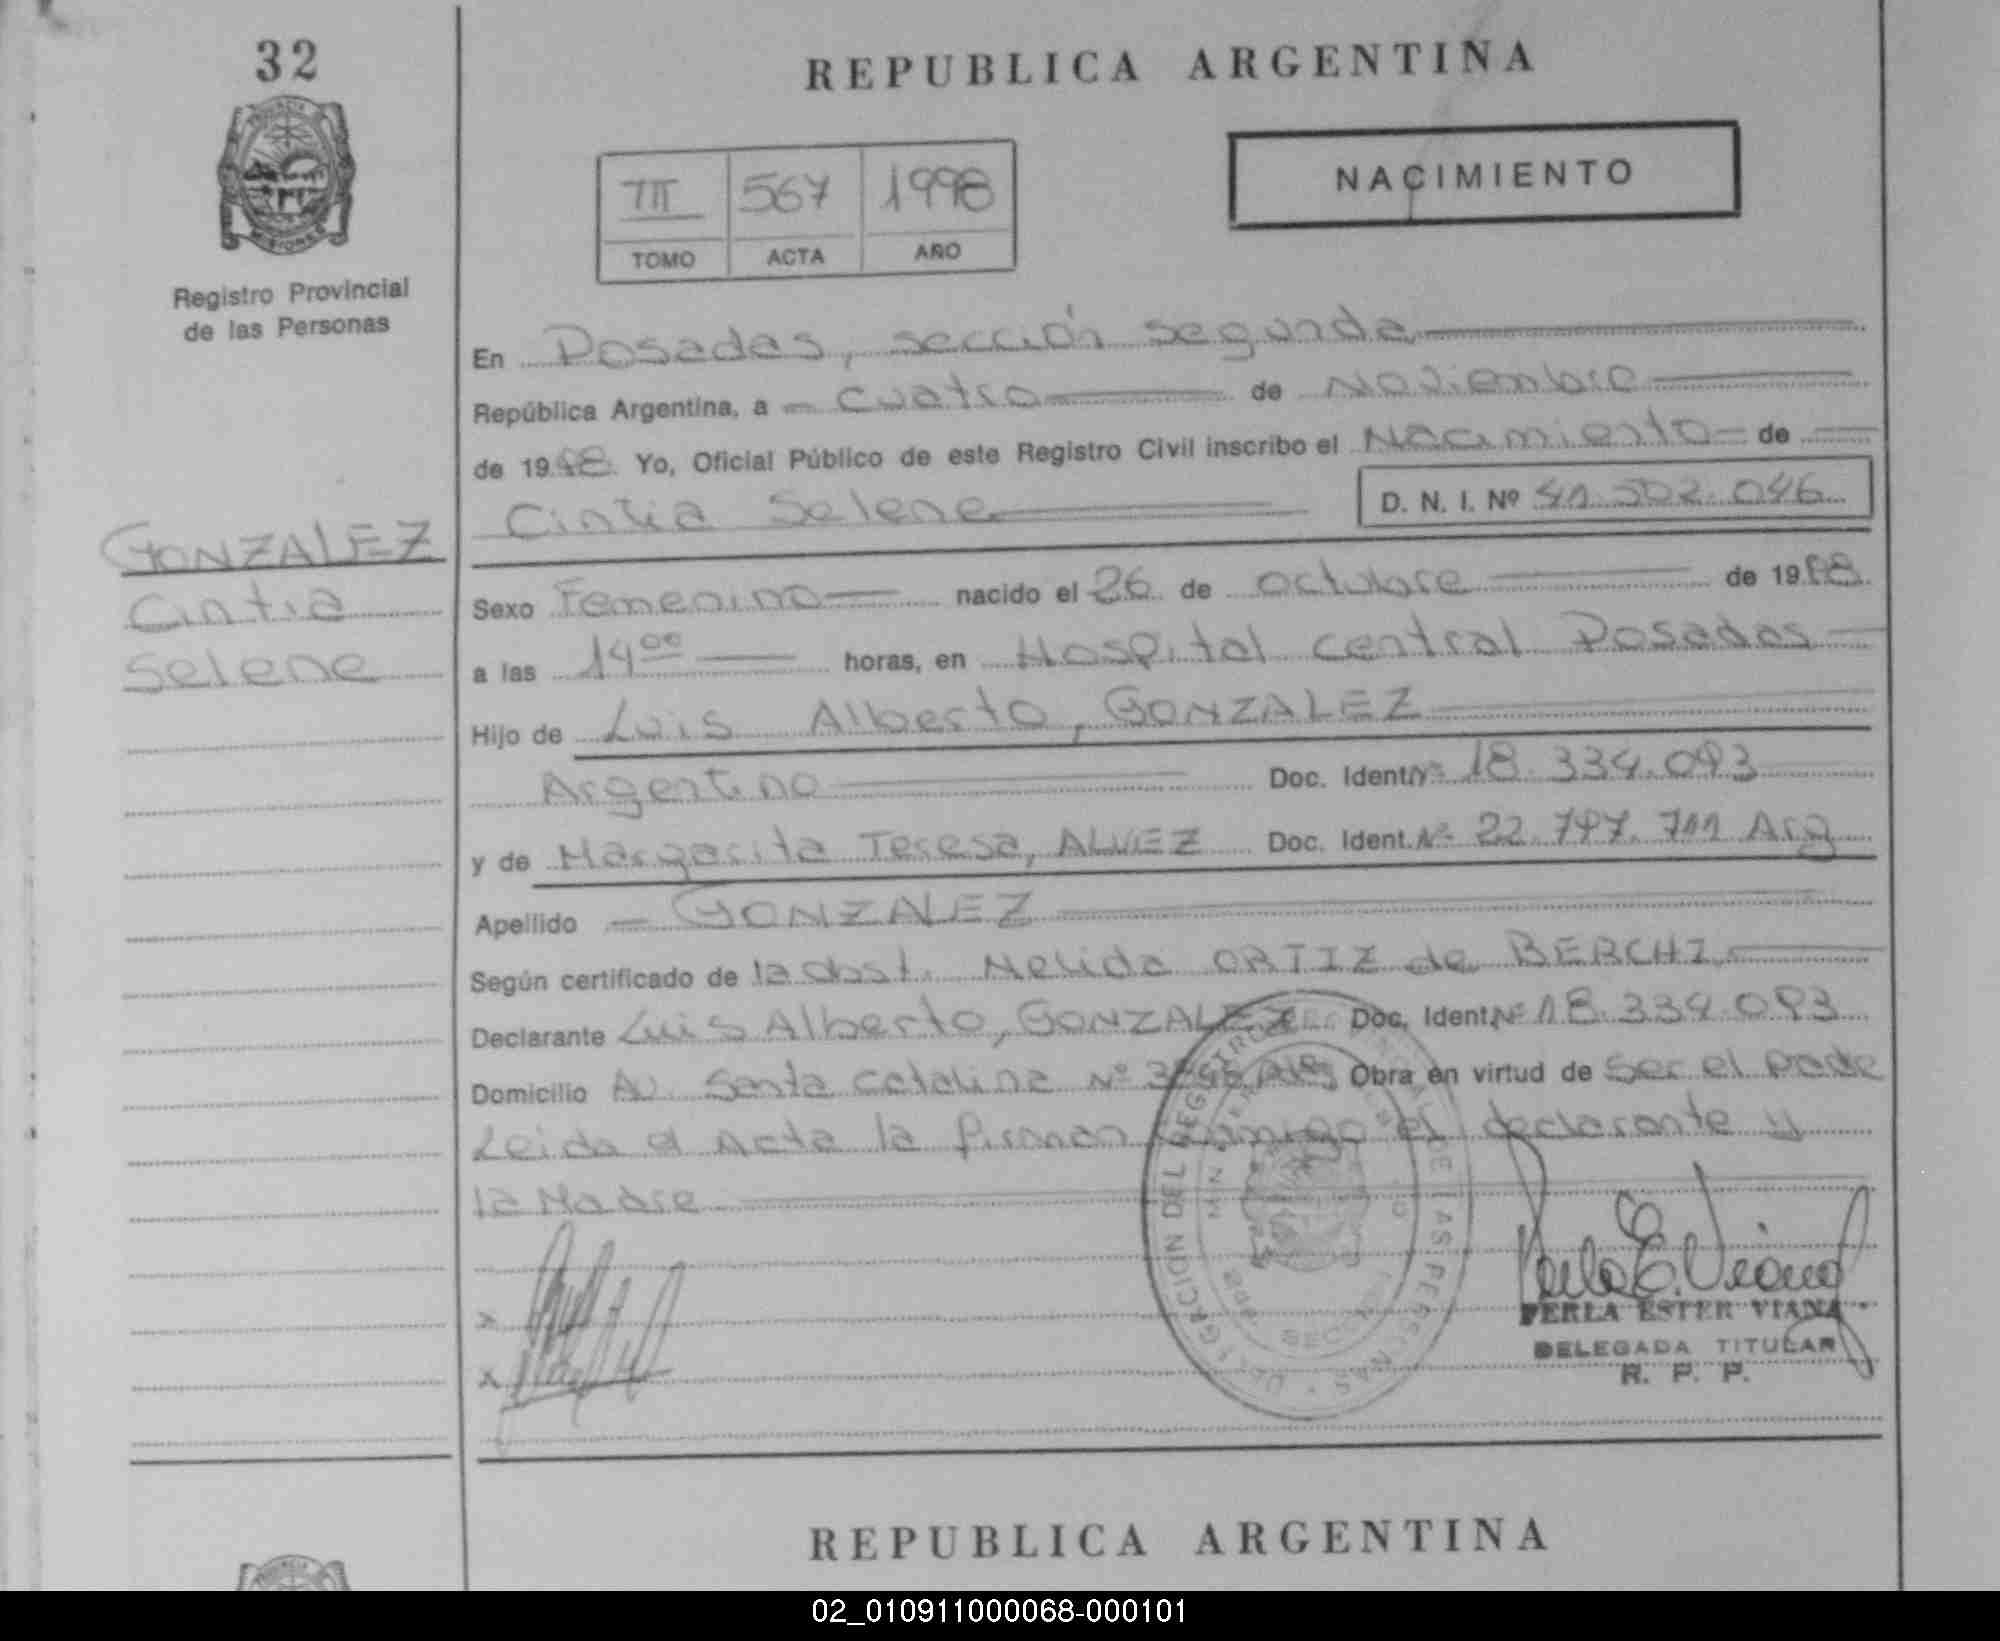 32
REPUBLICA ARGENTINA
NACIMIENTO
III 567 1998
TOMO ACTA AÑO
Registro Provincial
de las Personas
En Posadas, sección segunda
República Argentina, a cuatro de Noviembre
de 1998. Yo, Oficial Público de este Registro Civil inscribo el Nacimiento de
Cintia Selene D. N. I. Nº 41.502.046
GONZALEZ
Cintia
Selene
Sexo Femenino nacido el 26 de octubre de 1998.
a las 14⁰⁰ horas, en Hospital central Posadas
Hijo de Luis Alberto, GONZALEZ
Argentino Doc. Ident. Nº 18.334.093
y de Margarita Teresa, ALVEZ Doc. Ident. Nº 22.797.711 Arg
Apellido GONZALEZ
Según certificado de la obst. Nelida ORTIZ de BERCHI
Declarante Luis Alberto, GONZALEZ Doc. Ident. Nº 18.334.093
Domicilio Av. Santa Catalina Nº Obra en virtud de ser el padre
Leida el Acta la firman conmigo el declarante y
la Madre
DELEGACION DEL REGISTRO PROVINCIAL DE LAS PERSONAS
PERLA ESTER VIANA
DELEGADA TITULAR
R. P. P.
REPUBLICA ARGENTINA
02_010911000068-000101